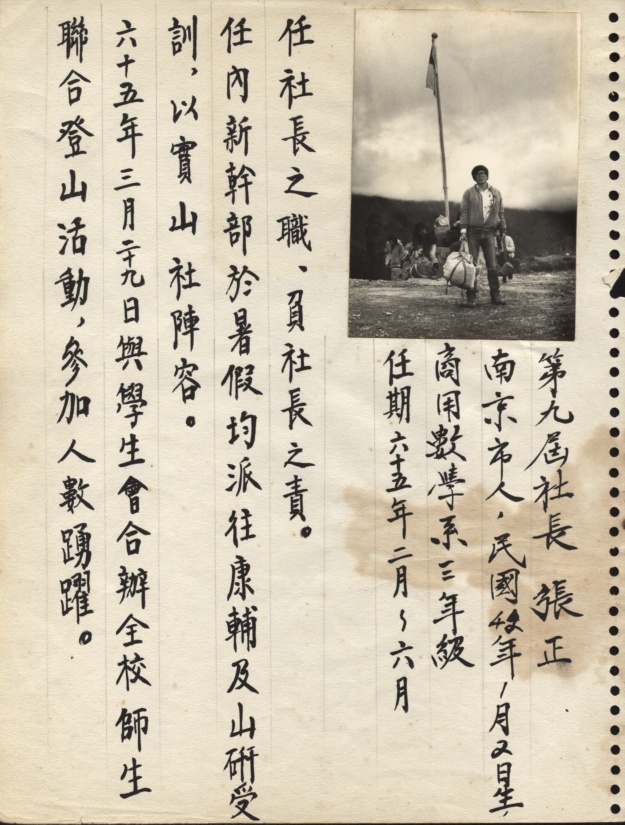 第九屆社長 張正
南京市人，民國 年1月 日生
商用數學系三年級
任期六十五年二月～六月
任社長之職、負社長之責。
任內新幹部於暑假均派往康輔及山研受
訓，以實山社陣容。
六十五年三月二十九日與學生會合辦全校師生
聯合登山活動，參加人數踴躍。